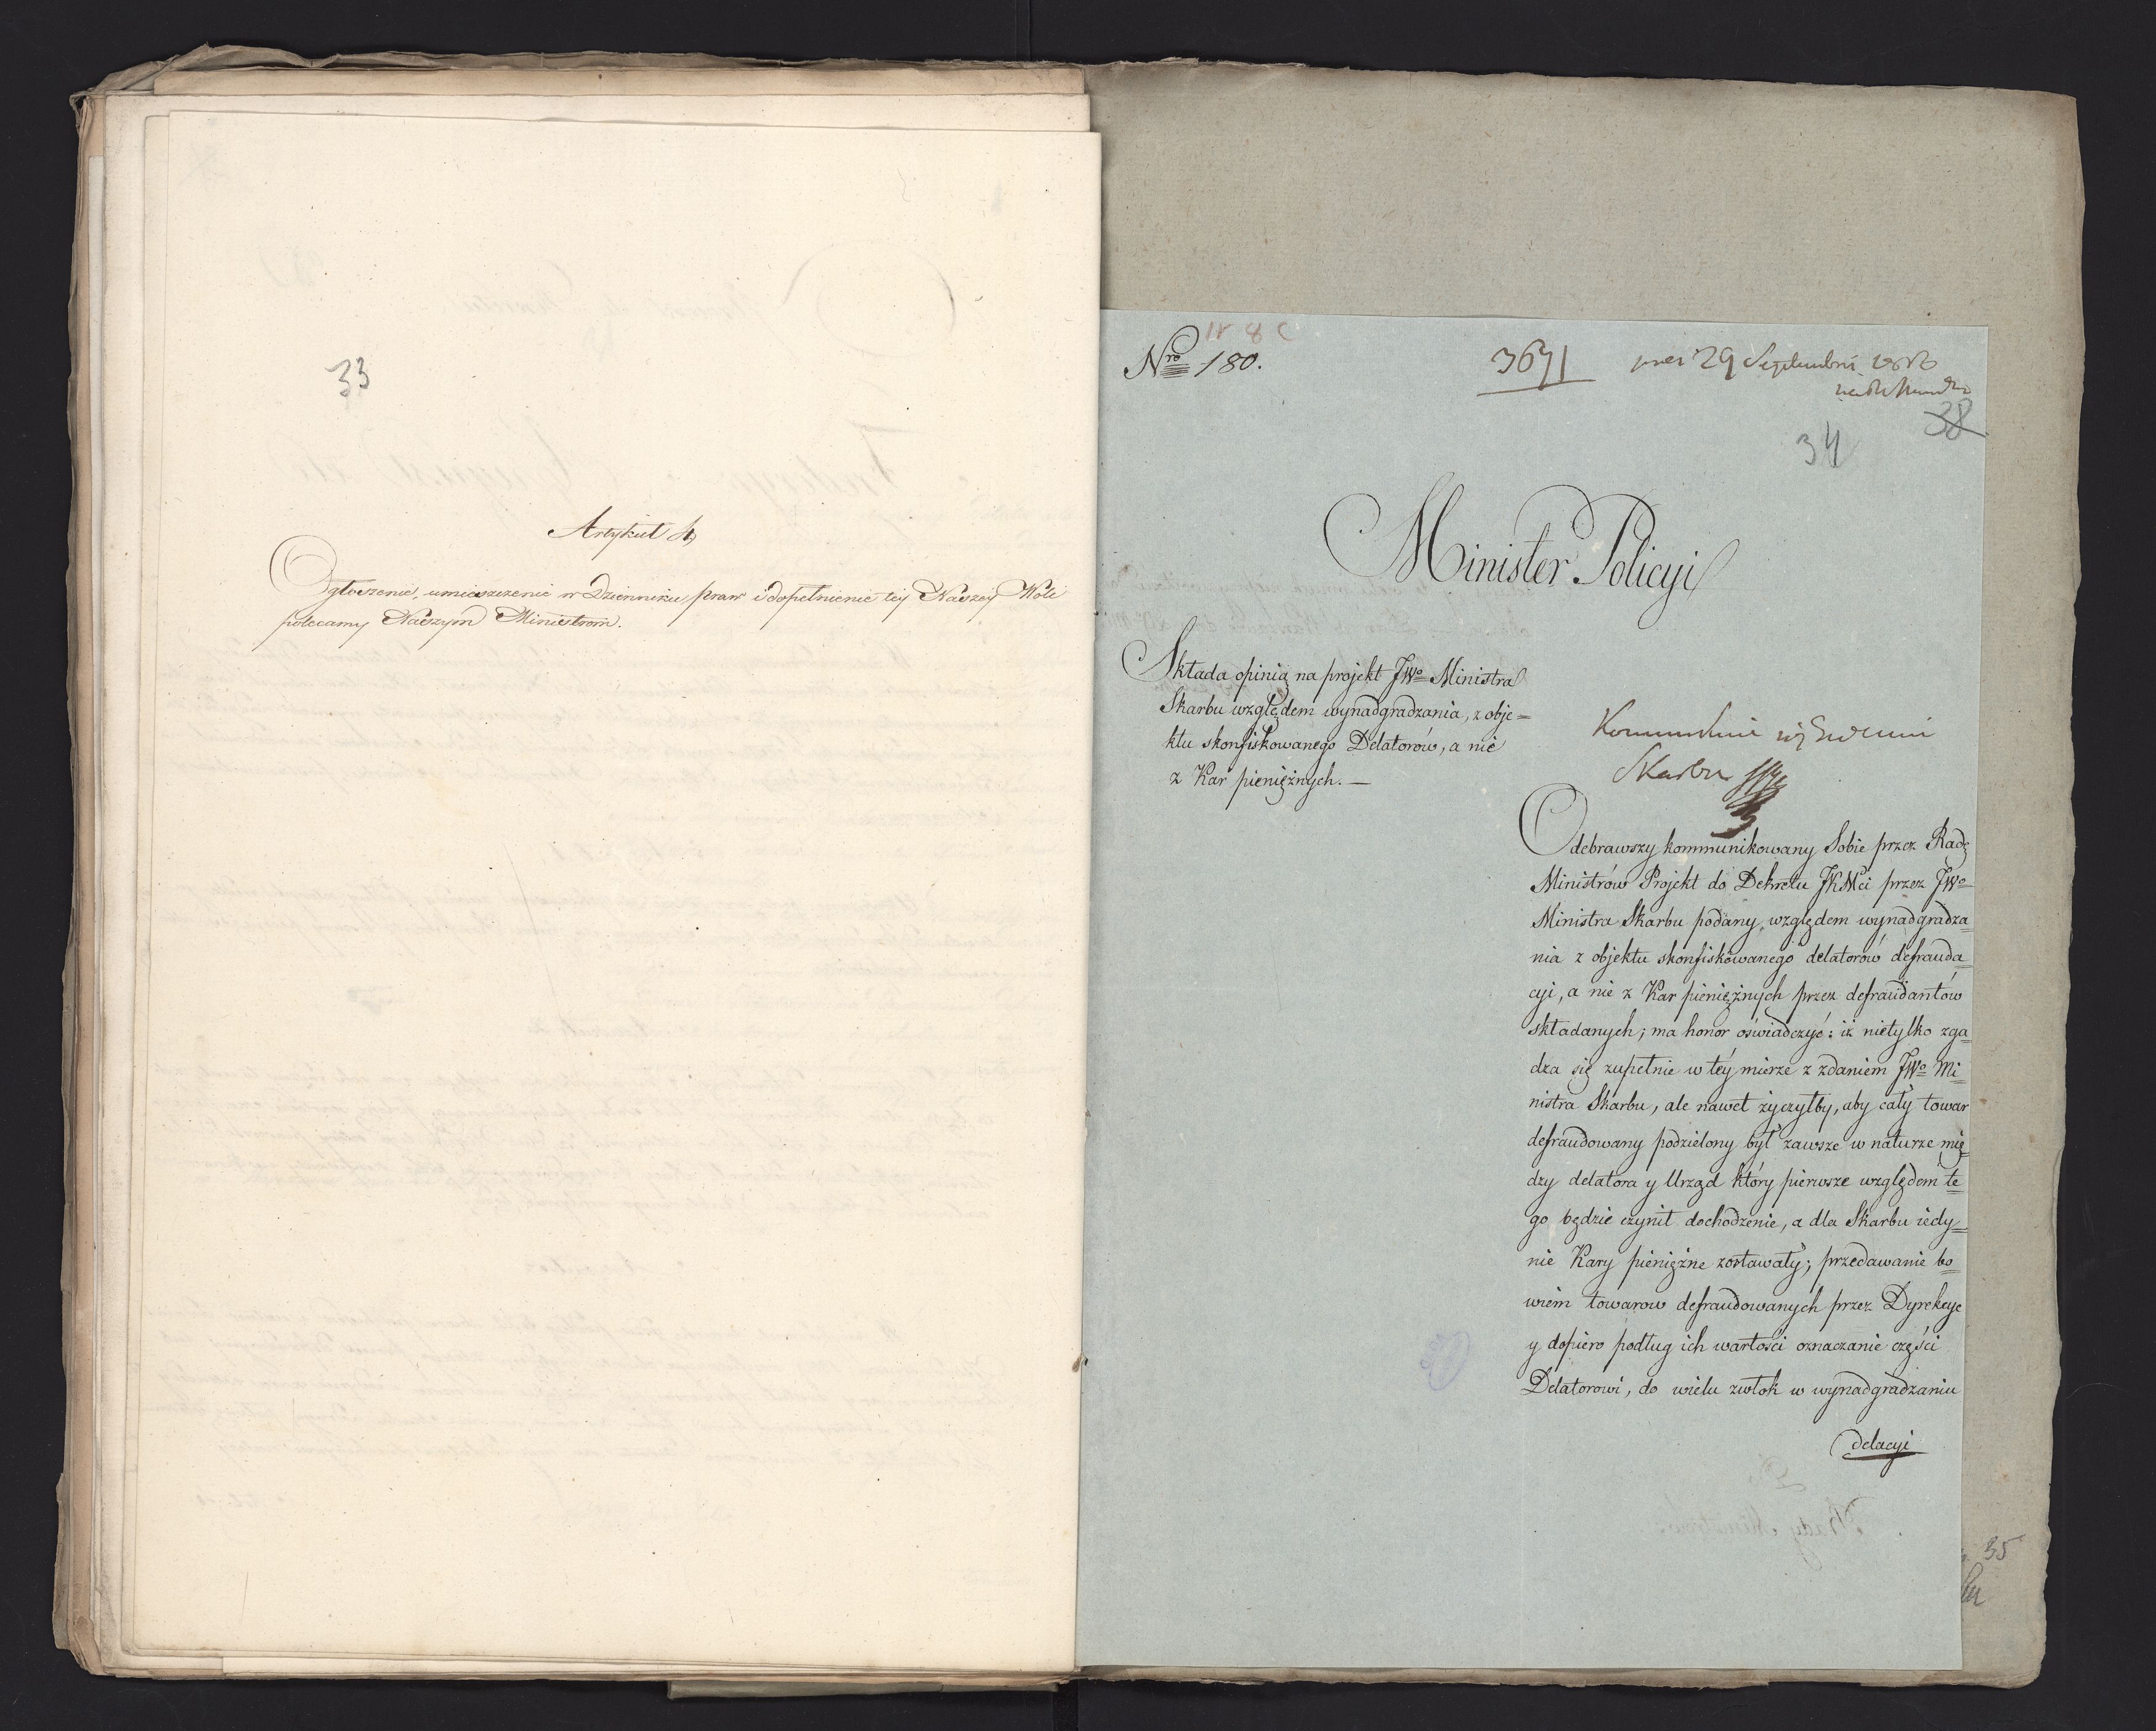 33
Artykuł 4
Ogłoszenie, umieszczenie w Dzienniku praw i dopełnienie tey Naszey Woli
polecamy Naszym Ministrom.
Nro 180.
3671
29 Septembri
38
34
Minister Policyi
Składa opinią na projekt JWo Ministra
Skarbu względem wynadgradzania, z obje=
ktu skonfiskowanego Delatorów, a nie
z Kar pieniężnych.—
Skarbu
Odebrawszy kommunikowany Sobie przez Radę
Ministrów Projekt do Dekretu JKMci przez JWo
Ministra Skarbu podany, względem wynadgradza=
nia z objektu skonfiskowanego delatorów defrauda=
cyi, a nie z Kar pieniężnych przez defraudantów
składanych; ma honor oświadczyć: iż nietylko zga=
dza się zupełnie w téy mierze z zdaniem JWo Mi=
nistra Skarbu, ale nawet życzyłby, aby cały towar
defraudowany podzielony był zawsze w naturze mię=
dzy delatora y Urząd który pierwsze względem te=
go będzie czynił dochodzenie, a dla Skarbu iedy=
nie Kary pieniężne zostawały; przedawanie bo=
wiem towarow defraudowanych przez Dyrekcye
y dopiero podług ich wartości oznaczanie części
Delatorowi, do wielu zwłok w wynadgradzaniu
delacyi
35